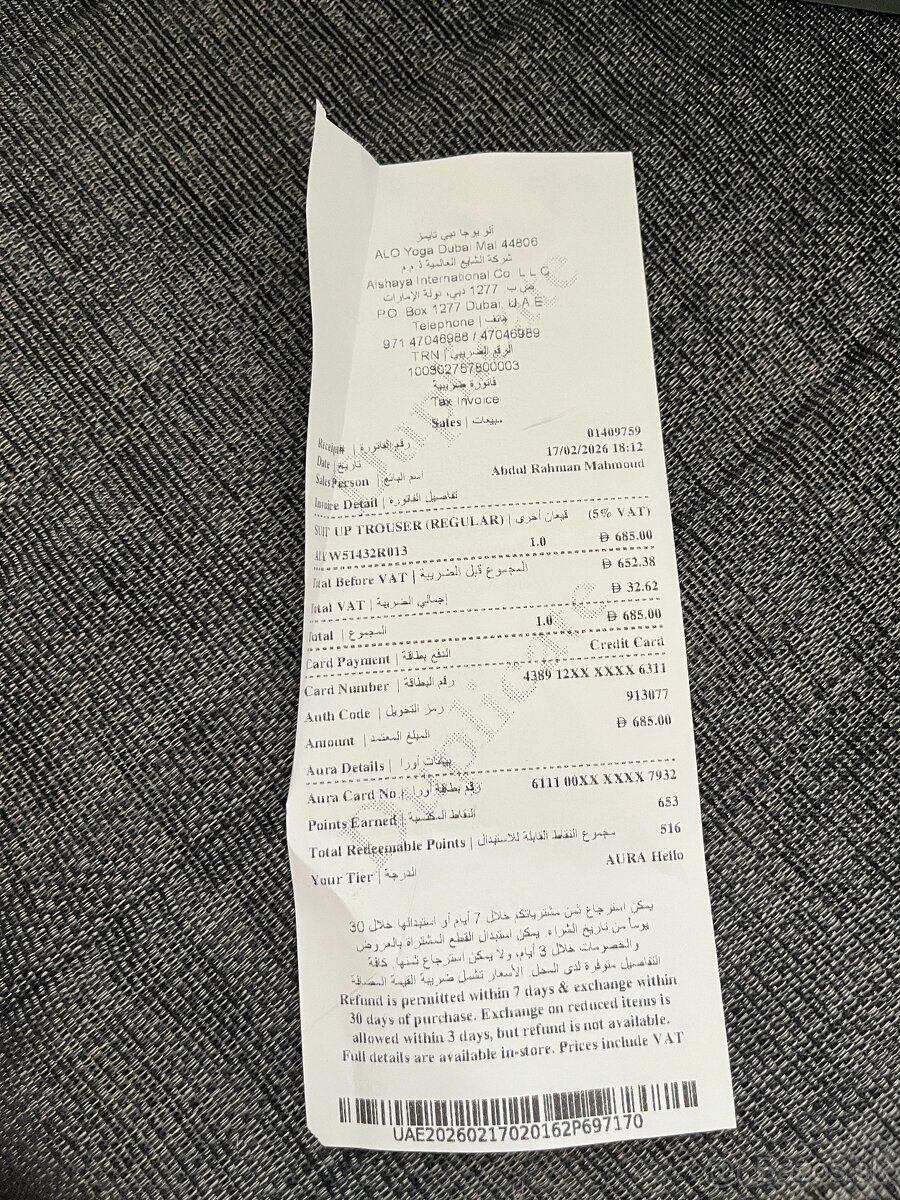 ألو يوجا دبي تايمز
ALO Yoga Dubai Mal 44806
شركة الشايع العالمية ذ.م.م
Alshaya International Co. L L C
ص.ب. 1277 دبي، دولة الإمارات
P.O. Box 1277 Dubai, U.A.E
Telephone | هاتف
971 47046988 / 47046989
TRN | الرقم الضريبي
100302757800003
فاتورة ضريبية
Tax Invoice
Sales | مبيعات
Receipt# | رقم الفاتورة 01409759
Date | تاريخ 17/02/2026 18:12
Sales Person | اسم البائع Abdul Rahman Mahmoud
Invoice Detail | تفاصيل الفاتورة
SUIT UP TROUSER (REGULAR) | قبعات أخرى (5% VAT)
W51432R013 1.0 685.00
Total Before VAT | المجموع قبل الضريبة 652.38
Total VAT | إجمالي الضريبة 32.62
Total | المجموع 1.0 685.00
Card Payment | الدفع بطاقة Credit Card
Card Number | رقم البطاقة 4389 12XX XXXX 6311
Auth Code | رمز التخويل 913077
Amount | المبلغ المعتمد 685.00
Aura Details | بيانات أورا
Aura Card No. | رقم بطاقة أورا 6111 00XX XXXX 7932
Points Earned | النقاط المكتسبة 653
Total Redeemable Points | مجموع النقاط القابلة للاستبدال 516
Your Tier | الدرجة AURA Hello
يمكن استرجاع ثمن مشترياتكم خلال 7 أيام أو استبدالها خلال 30
يوما من تاريخ الشراء. يمكن استبدال القطع المشتراة بالعروض
والخصومات خلال 3 أيام، ولا يمكن استرجاع ثمنها. كافة
التفاصيل متوفرة لدى المحل. الأسعار تشمل ضريبة القيمة المضافة
Refund is permitted within 7 days & exchange within
30 days of purchase. Exchange on reduced items is
allowed within 3 days, but refund is not available.
Full details are available in-store. Prices include VAT
UAE20260217020162P697170